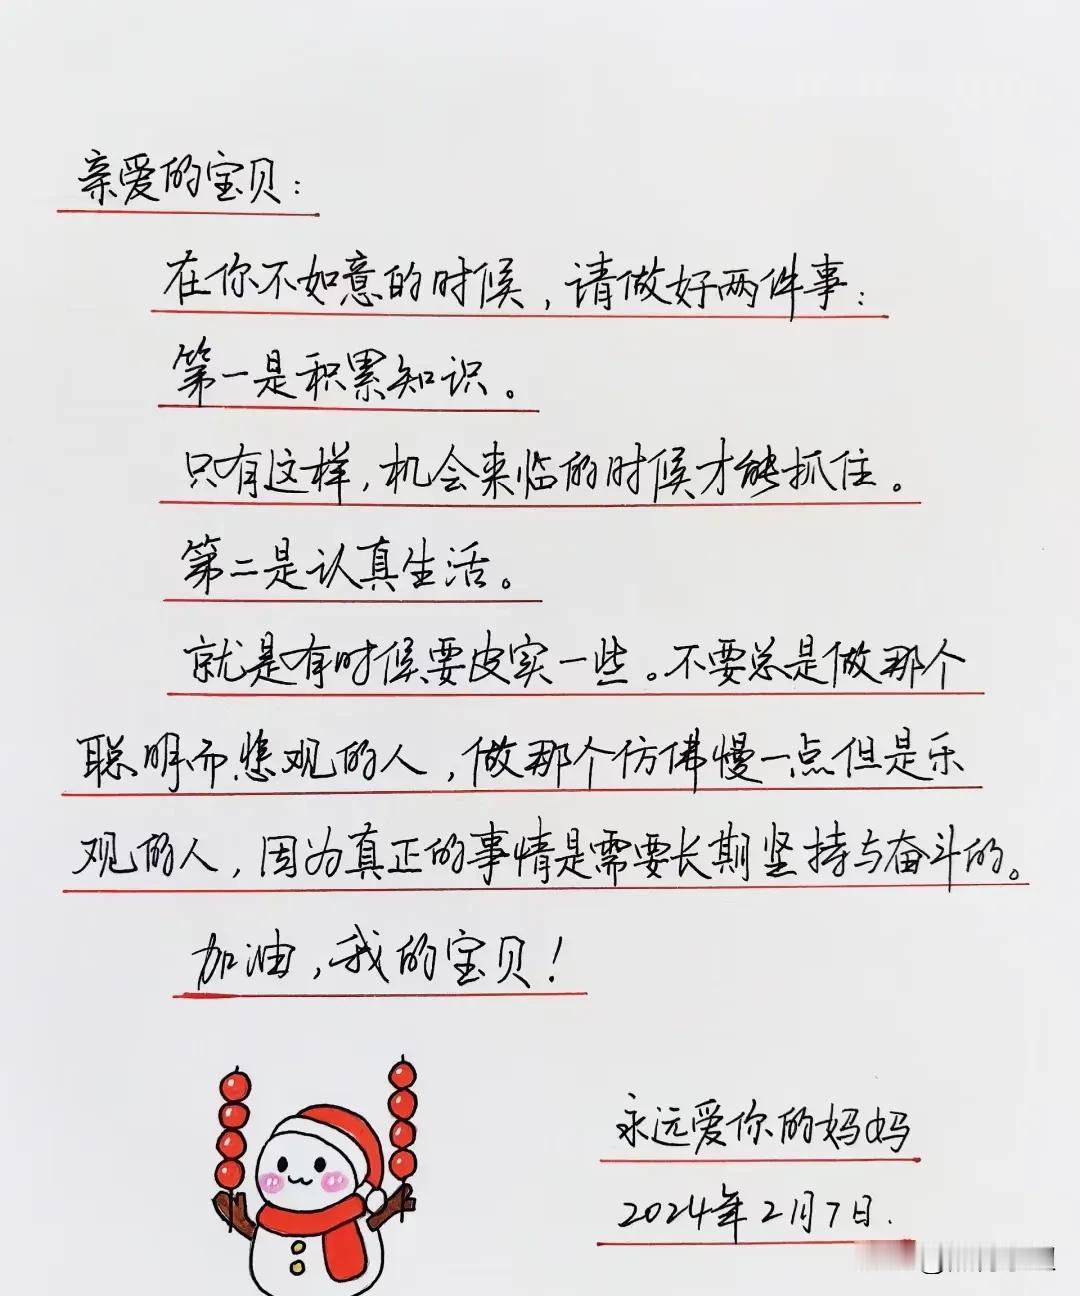 亲爱的宝贝：
在你不如意的时候，请做好两件事：
第一是积累知识。
只有这样，机会来临的时候才能抓住。
第二是认真生活。
就是有时候要皮实一些。不要总是做那个
聪明而悲观的人，做那个仿佛慢一点但是乐
观的人，因为真正的事情是需要长期坚持与奋斗的。
加油，我的宝贝！
永远爱你的妈妈
2024年2月7日.